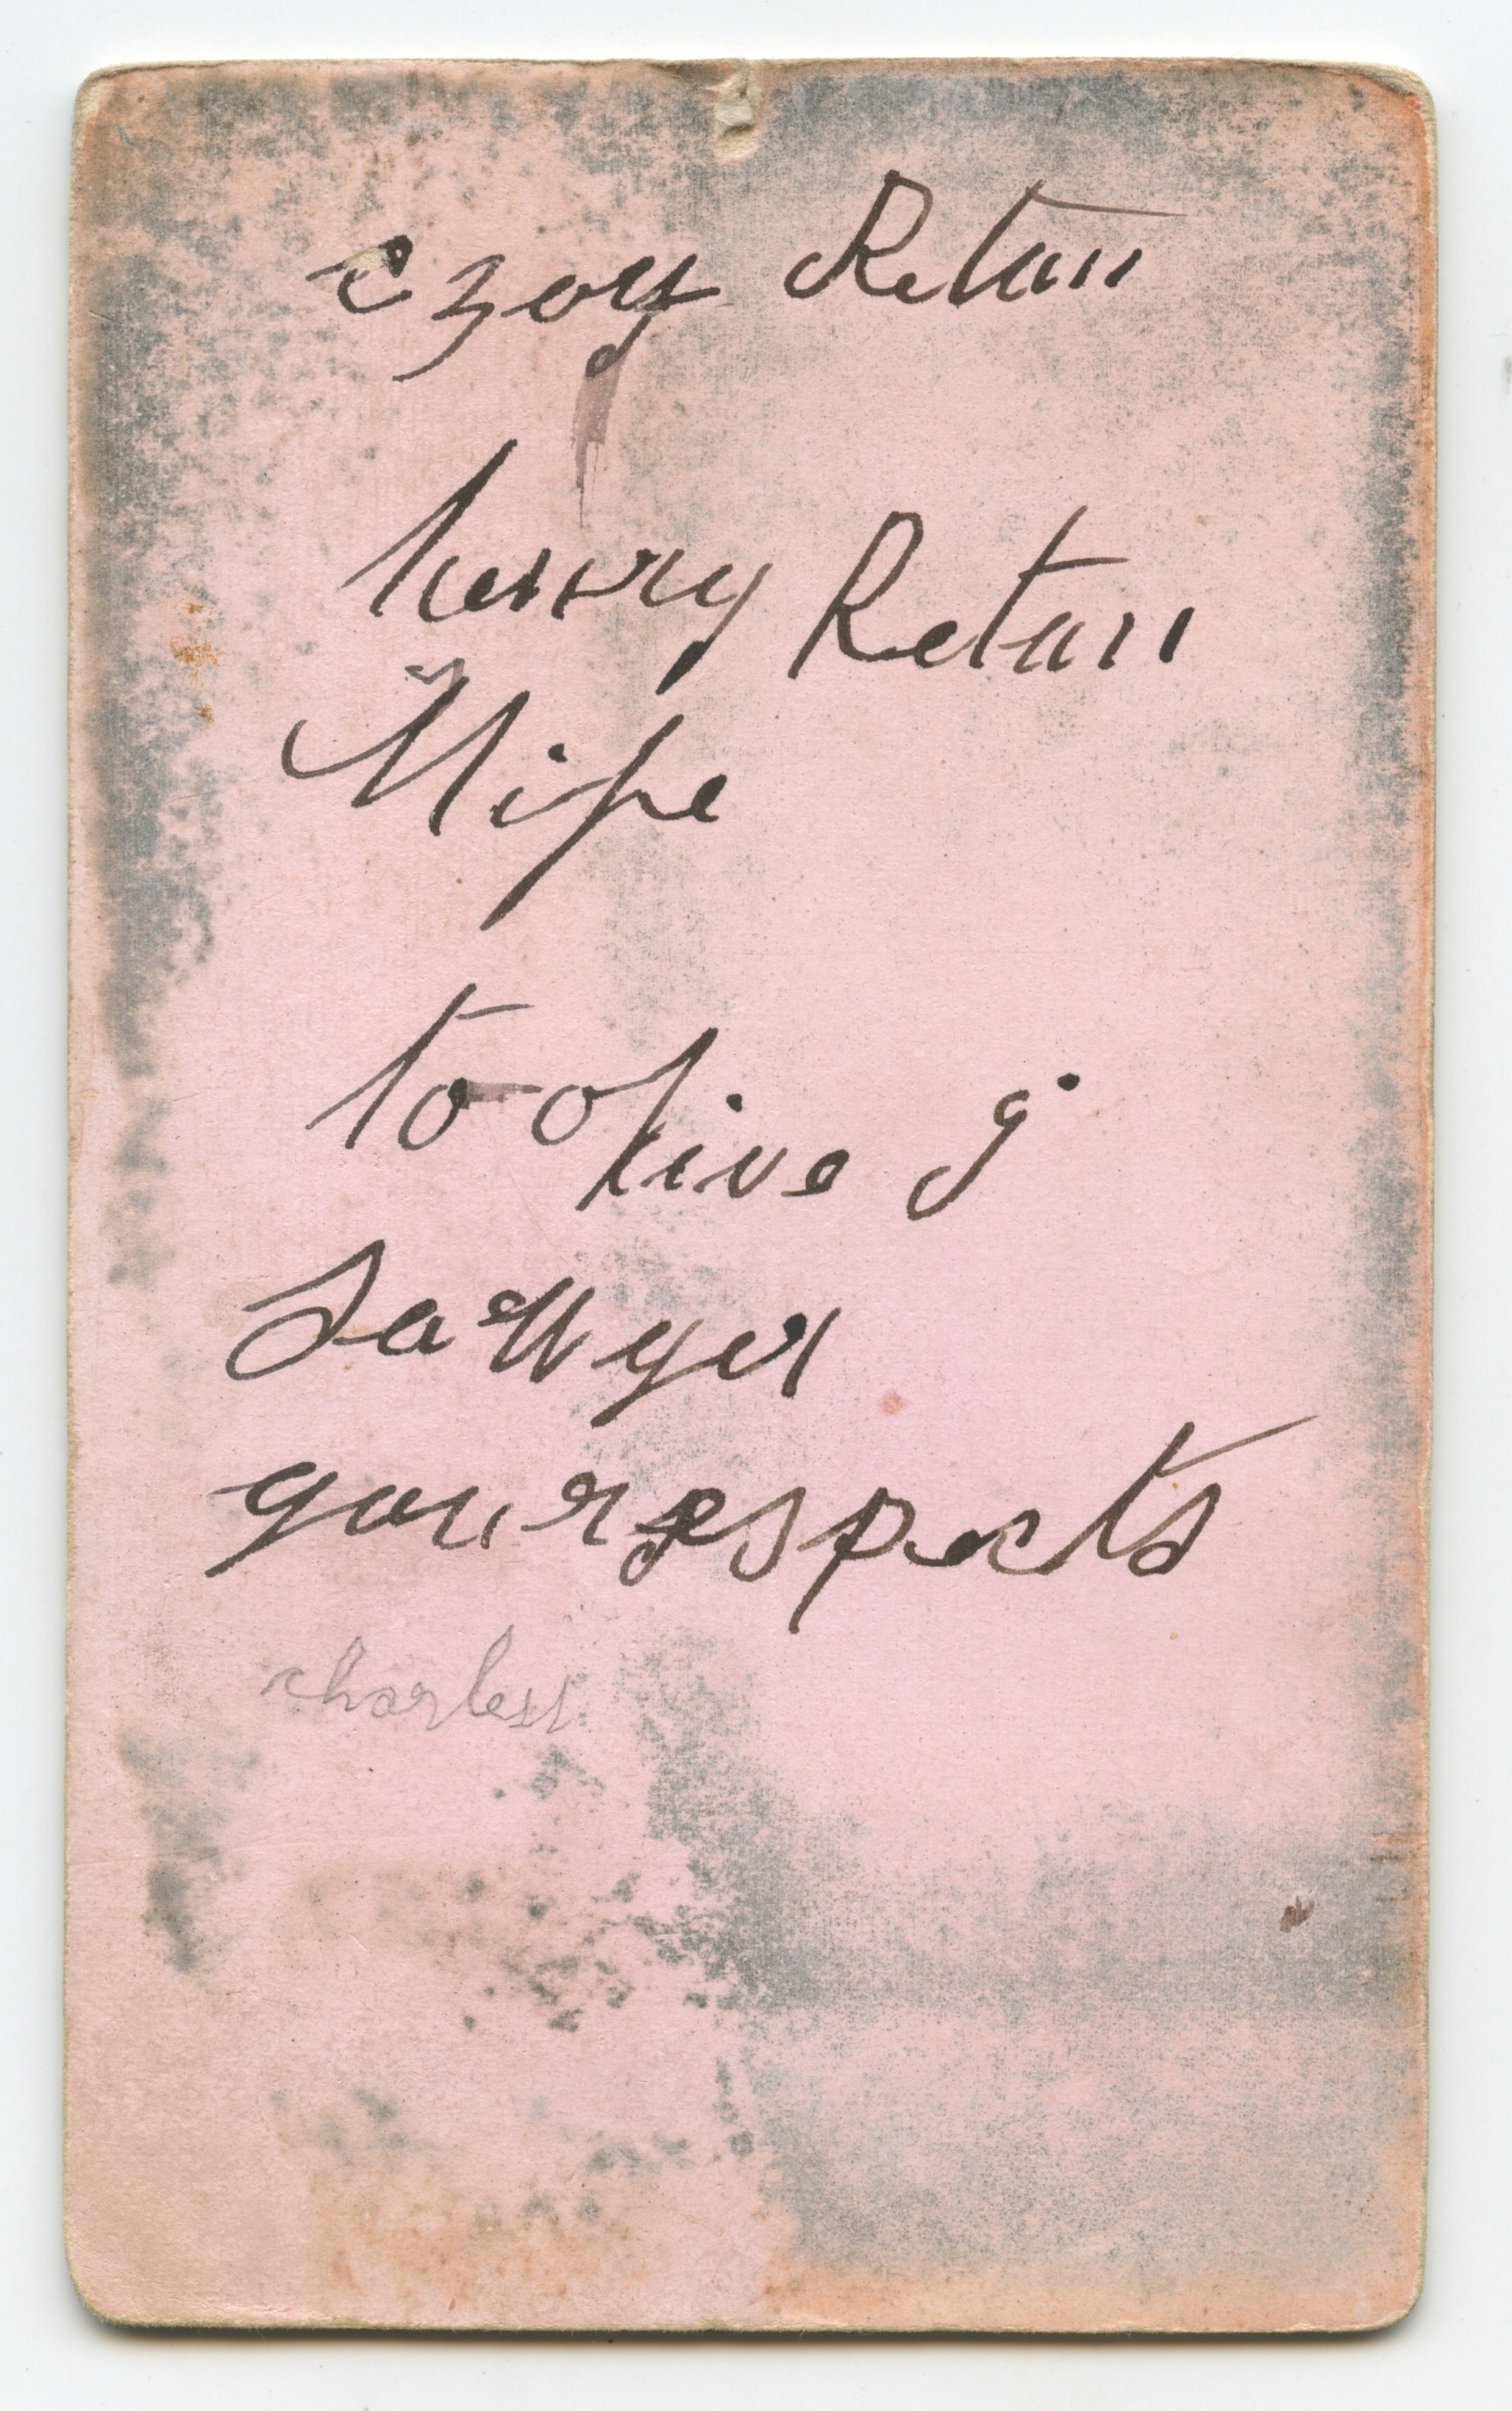 ezoy Retan
henry Retan
Wife
to olive g
Sawyer
your respects
charless